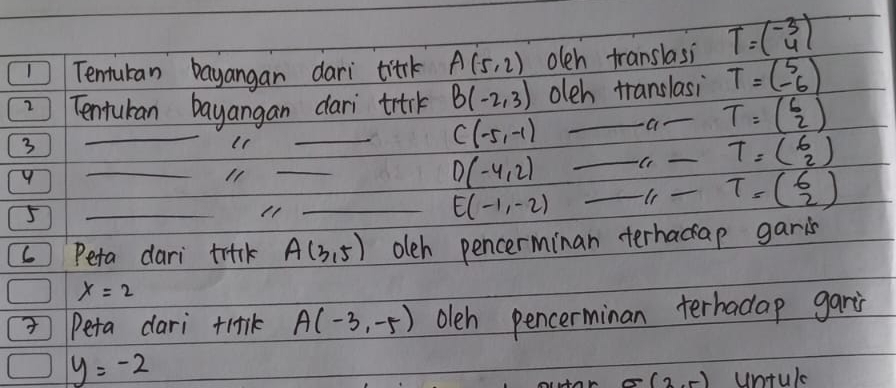 1 Tentukan bayangan dari titik A(5,2) oleh translasi T = (-3 4)
2 Tentukan bayangan dari titik B(-2,3) oleh translasi T = (5 -6)
3 —— " —— C(-5,-1) —— " — T = (6 2)
4 —— " —— D(-4,2) —— " — T = (6 2)
5 —— " —— E(-1,-2) —— " — T = (6 2)
6 Peta dari titik A(3,5) oleh pencerminan terhadap garis
x = 2
7 Peta dari titik A(-3,-5) oleh pencerminan terhadap garis
y = -2
untuk